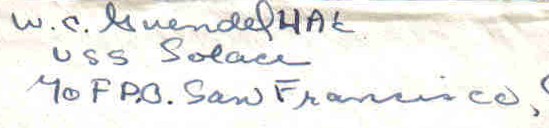 W. C. Guendel HA1
USS Solace
℅ F.P.O. San Francisco,